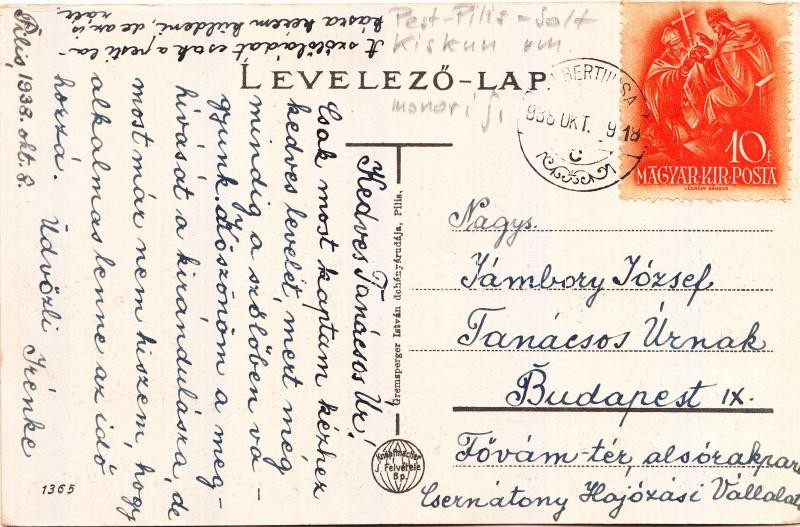 LEVELEZŐ-LAP
Pest-Pilis-Solt
Kiskun vm.
monori j.
938 OKT. 9 18
10 f
MAGYAR·KIR·POSTA
LÉGRÁDY SÁNDOR
Nagys.
Jámbory József
Tanácsos Úrnak
Budapest IX.
Fővám-tér, alsórakpart
Csernátony Hajózási Vállalat
Gremsperger István dohányárudája, Pilis.
Knapfmacher
J. Felvétele
Bp.
1365
Pilis, 1938. okt. 8.
Kedves Tanácsos Úr!
Csak most kaptam kézhez
kedves levelét, mert még
mindig a szőlőben va-
gyunk. Köszönöm a meg-
hívását a kirándulásra, de
most már nem hiszem, hogy
alkalmas lenne az idő
hozzá. Üdvözli Irénke
A szőlőládát csak a pesti la-
kásra kérem küldeni, de an is
ráér.